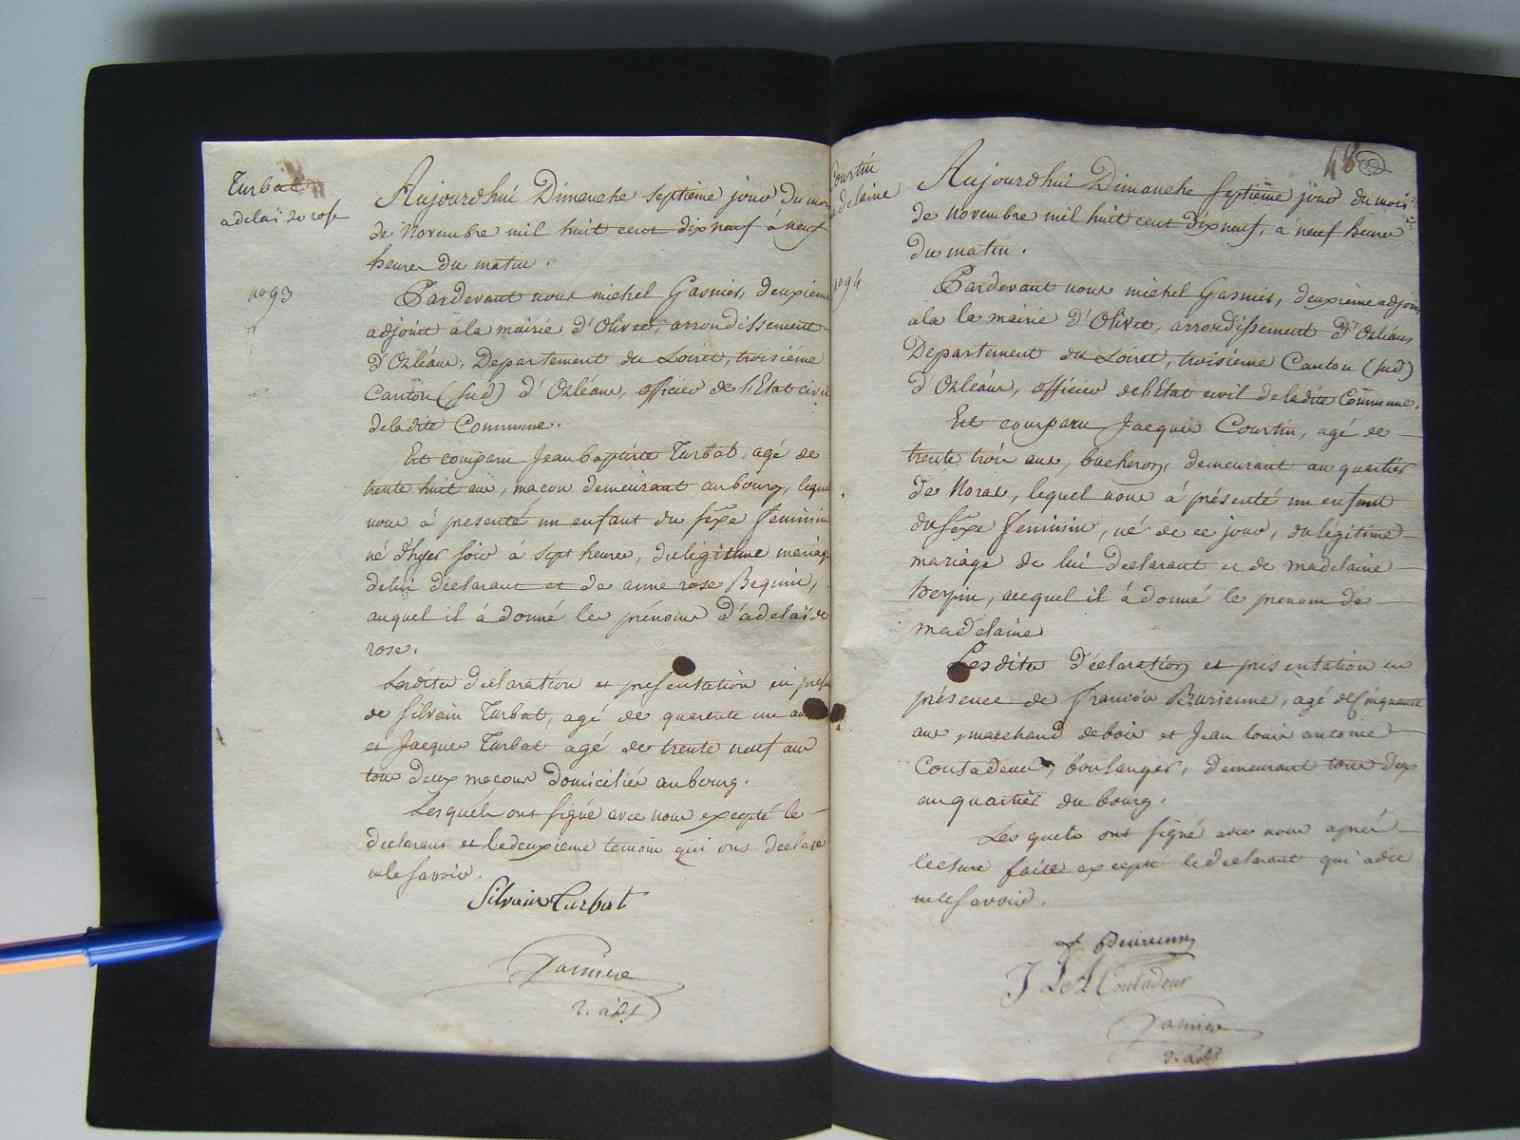 Turbat
adelai de rose
no 93
Aujourdhui Dimanche septième jour du mois
de Novembre mil huit cent dix neuf à neuf
heures du matin.
Pardevant nous michel Gasnier, deuxieme
adjoint à la mairie d'Olivet, arrondissement
d'Orléans, Departement du Loiret, troisième
Canton (Sud) d'Orléans, officier de l'Etat civil
de ladite Commune.
Est comparu Jean baptiste Turbat, agé de
trente huit ans, maçon demeurant au bourg, lequel
nous à presenté un enfant du sexe feminin
né d'hyer soir à sept heures, du légitime mariage
de lui déclarant et de anne rose Bequin,
auquel il à donné les prénoms d'adelaide
rose.
Lesdites declaration et presentation en pres
de Silvain Turbat, agé de quarente un ans
et Jacques Turbat agé de trente neuf ans
tous deux maçons domiciliés au bourg.
Lesquels ont signé avec nous excepté le
declarant et le deuxieme temoin qui ont declaré
ne le savoir.
Silvain Turbat
Gasnier
2. adj
48
Courtin
adelaine
no 94
Aujourdhui Dimanche septième jour du mois
de Novembre mil huit cent dix neuf, à neuf heures
du matin.
Pardevant nous michel Gasnier, deuxième adjoint
à la la mairie d'Olivet, arrondissement d'Orléans
Departement du Loiret, troisième Canton (Sud)
d'Orléans, officier de l'Etat civil de ladite Commune.
Est comparu Jacques Courtin, agé de
trente trois ans, bucheron, demeurant au quartier
de Noras, lequel nous à présenté un enfant
du sexe feminin, né de ce jour, du légitime
mariage de lui declarant et de madelaine
herpin, auquel il à donné le prenom de
madelaine
Lesdites déclaration et presentation en
présence de François Burienne, agé de Cinquante
ans, marchand de bois et Jean louis antoine
Coutadeur, boulanger, demeurant tous deux
au quartier du bourg.
Les quels ont signé avec nous après
lecture faite excepté le declarant qui a dit
ne le savoir.
J L A Coutadeur
Gasnier
2. adj